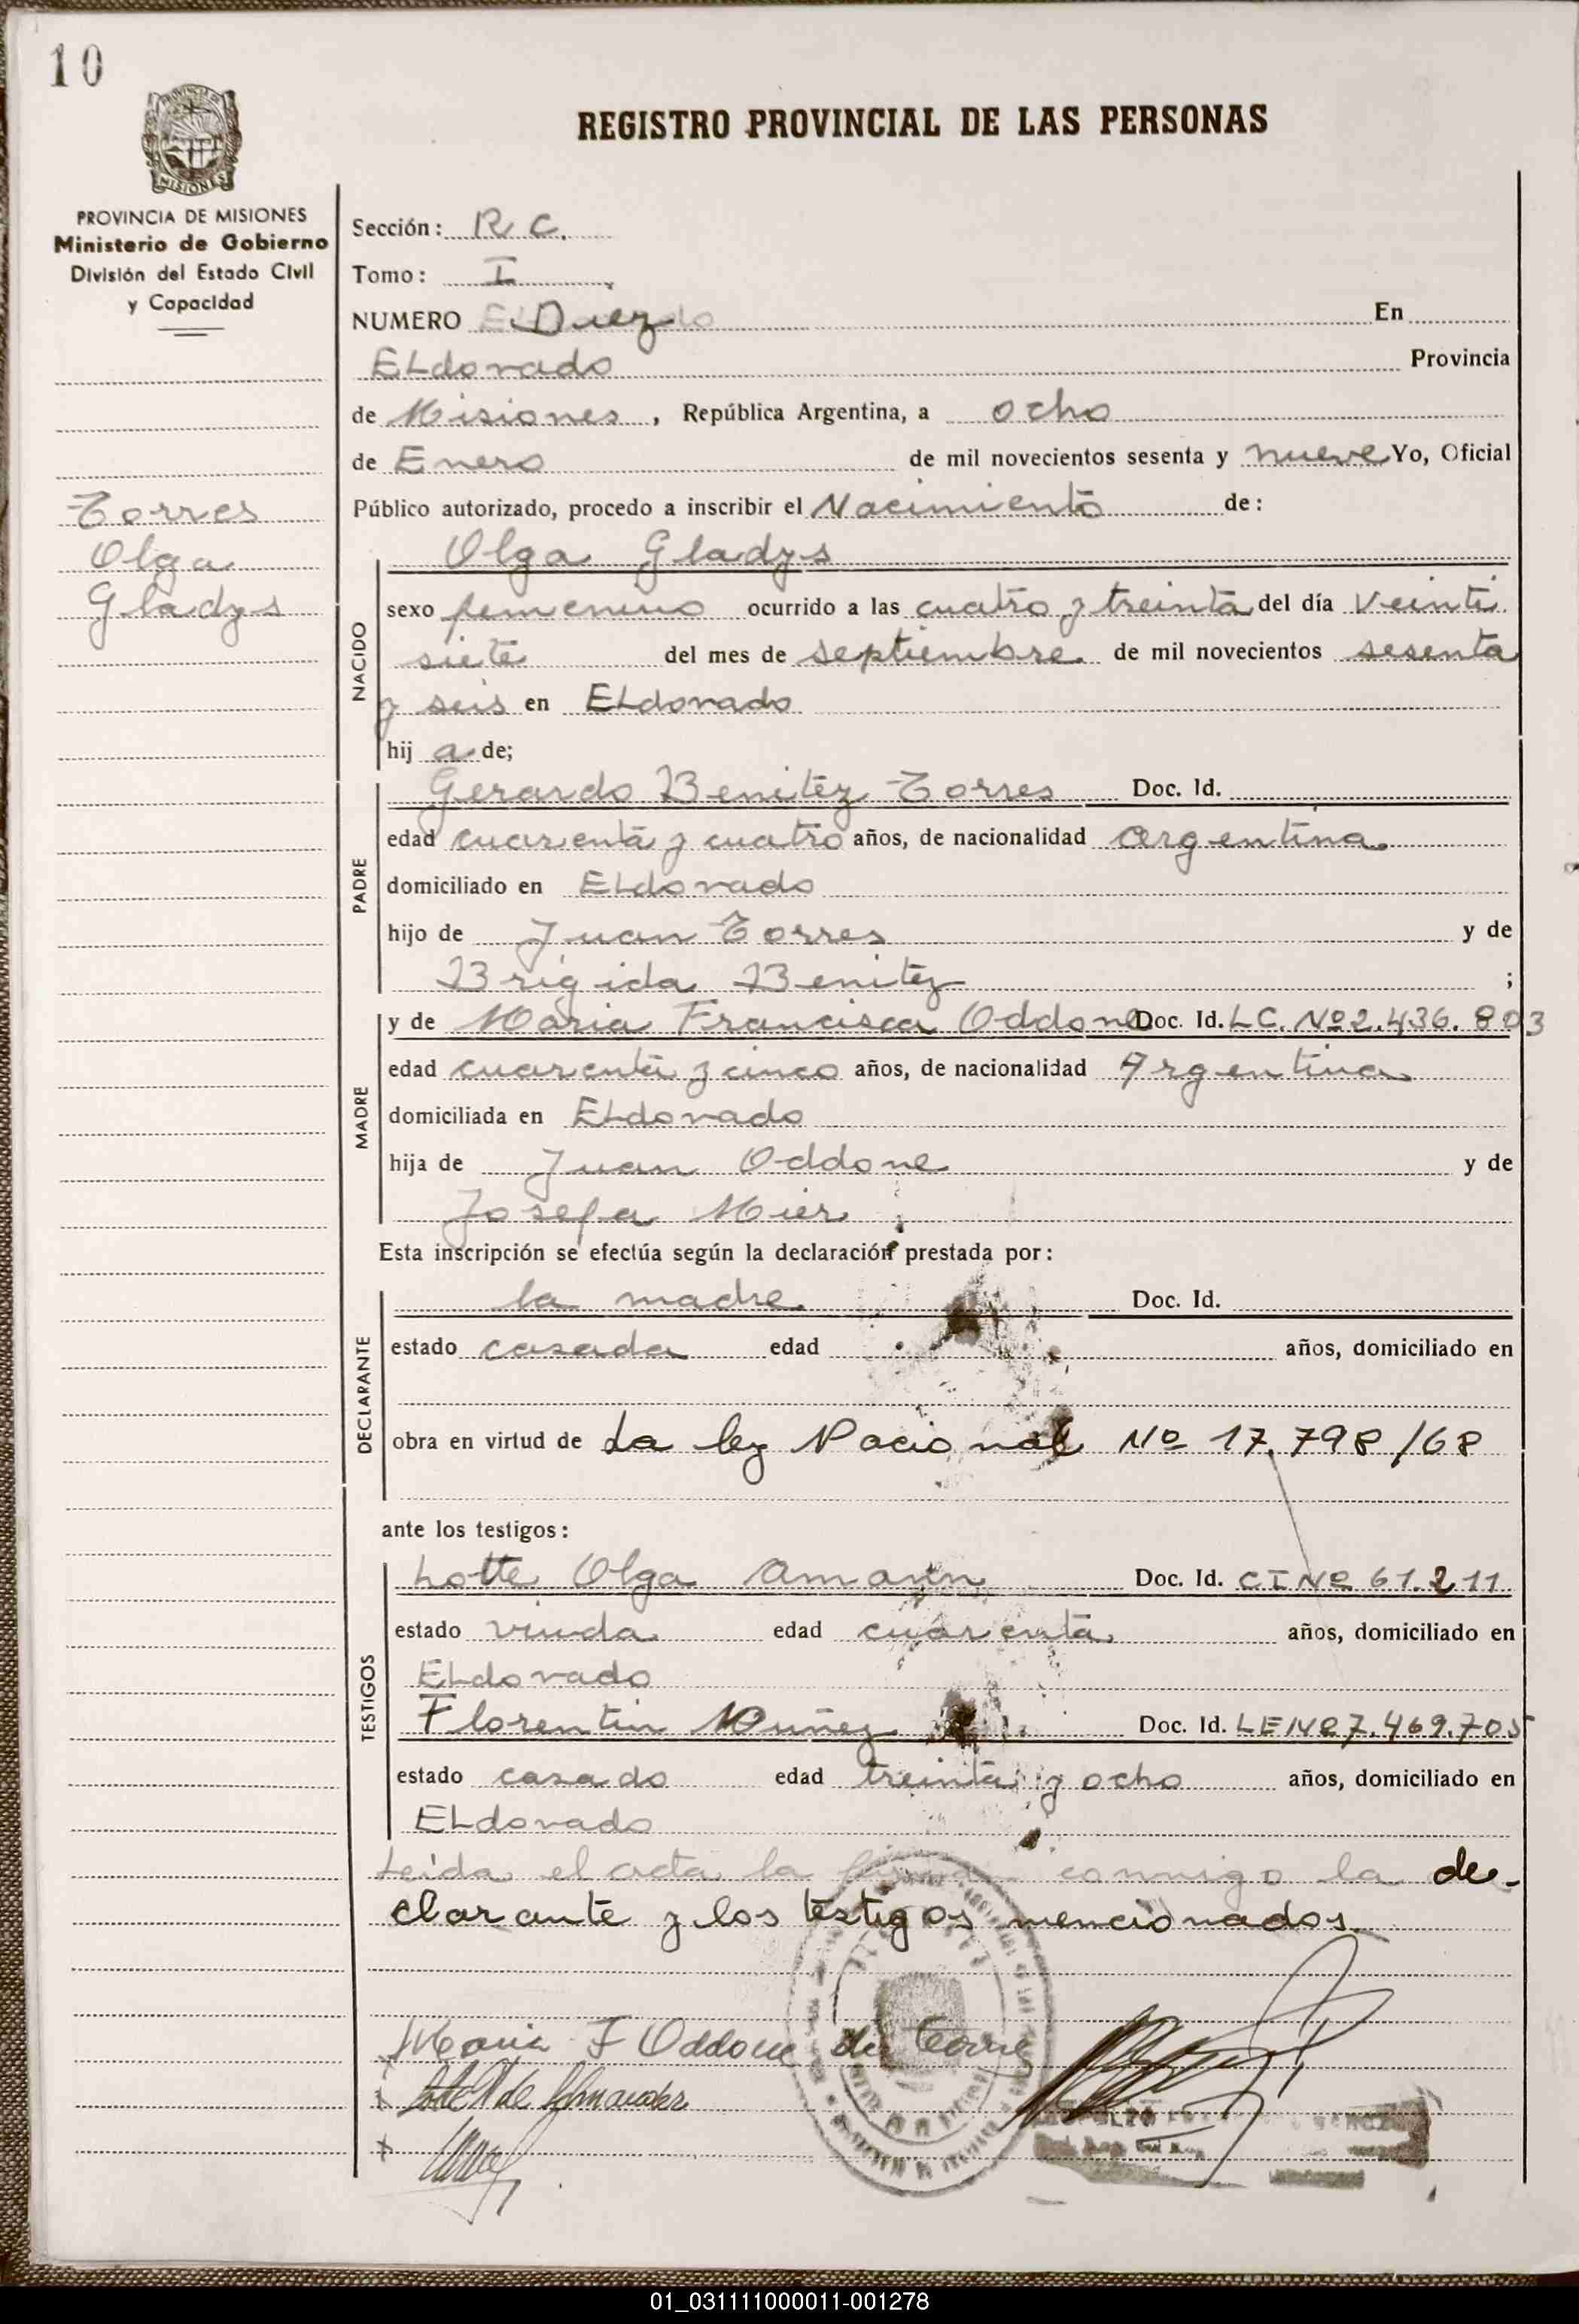 10
PROVINCIA DE MISIONES
Ministerio de Gobierno
División del Estado Civil
y Capacidad
Torres
Olga
Gladys
REGISTRO PROVINCIAL DE LAS PERSONAS
Sección: R C.
Tomo: I
NUMERO Diez En
ELdorado Provincia
de Misiones, República Argentina, a ocho
de Enero de mil novecientos sesenta y nueve Yo, Oficial
Público autorizado, procedo a inscribir el Nacimiento de:
Olga Gladys
NACIDO
sexo femenino ocurrido a las cuatro y treinta del día Veinti
siete del mes de septiembre de mil novecientos sesenta
y seis en ELdorado
hij a de;
PADRE
Gerardo Benitez Torres Doc. Id.
edad cuarenta y cuatro años, de nacionalidad argentina
domiciliado en ELdorado
hijo de Juan Torres y de
Brigida Benitez ;
MADRE
y de Maria Francisca Oddone Doc. Id. LC. Nº 2.436.803
edad cuarenta y cinco años, de nacionalidad Argentina
domiciliada en ELdorado
hija de Juan Oddone y de
Josefa Mier
Esta inscripción se efectúa según la declaración prestada por:
DECLARANTE
la madre Doc. Id.
estado casada edad años, domiciliado en
obra en virtud de La ley Nacional Nº 17.798/68
ante los testigos:
TESTIGOS
Lotte Olga Amann Doc. Id. CI Nº 61.211
estado viuda edad cuarenta años, domiciliado en
ELdorado
Florentin Nuñez Doc. Id. LE Nº 7.469.705
estado casado edad treinta y ocho años, domiciliado en
ELdorado
Leida el acta la conmigo la de-
clarante y los testigos mencionados.
Maria F Oddone de Torre
01_031111000011-001278